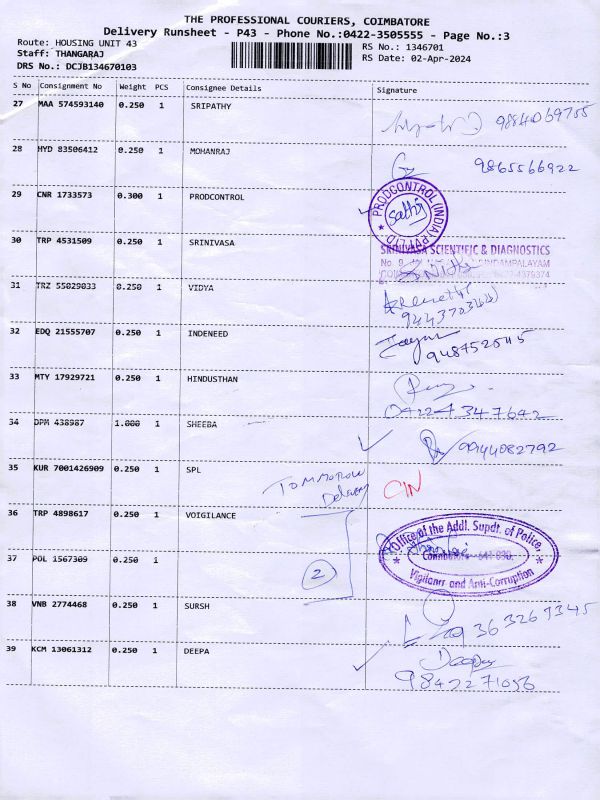 THE PROFESSIONAL COURIERS, COIMBATORE
Delivery Runsheet - P43 - Phone No.:0422-3505555 - Page No.:3
Route: HOUSING UNIT 43
Staff: THANGARAJ
DRS No.: DCJB134670103
RS No.: 1346701
RS Date: 02-Apr-2024
S No Consignment No Weight PCS Consignee Details Signature
27 MAA 574593140 0.250 1 SRIPATHY
9884069755
28 HYD 83506412 0.250 1 MOHANRAJ
9865566922
29 CNR 1733573 0.300 1 PRODCONTROL
PRODCONTROL (INDIA) PVT LTD
30 TRP 4531509 0.250 1 SRINIVASA
SRINIVASA SCIENTIFIC & DIAGNOSTICS
31 TRZ 55029033 0.250 1 VIDYA
32 EDQ 21555707 0.250 1 INDENEED
33 MTY 17929721 0.250 1 HINDUSTHAN
04224347642
34 DPM 438987 1.000 1 SHEEBA
9944082792
35 KUR 7001426909 0.250 1 SPL
TOMMOROW
Delivery
36 TRP 4898617 0.250 1 VOIGILANCE
Office of the Addl. Supdt. of Police,
Vigilance and Anti-Corruption
37 POL 1567309 0.250 1
2
38 VNB 2774468 0.250 1 SURSH
9363269345
39 KCM 13061312 0.250 1 DEEPA
Deepa
9842271056